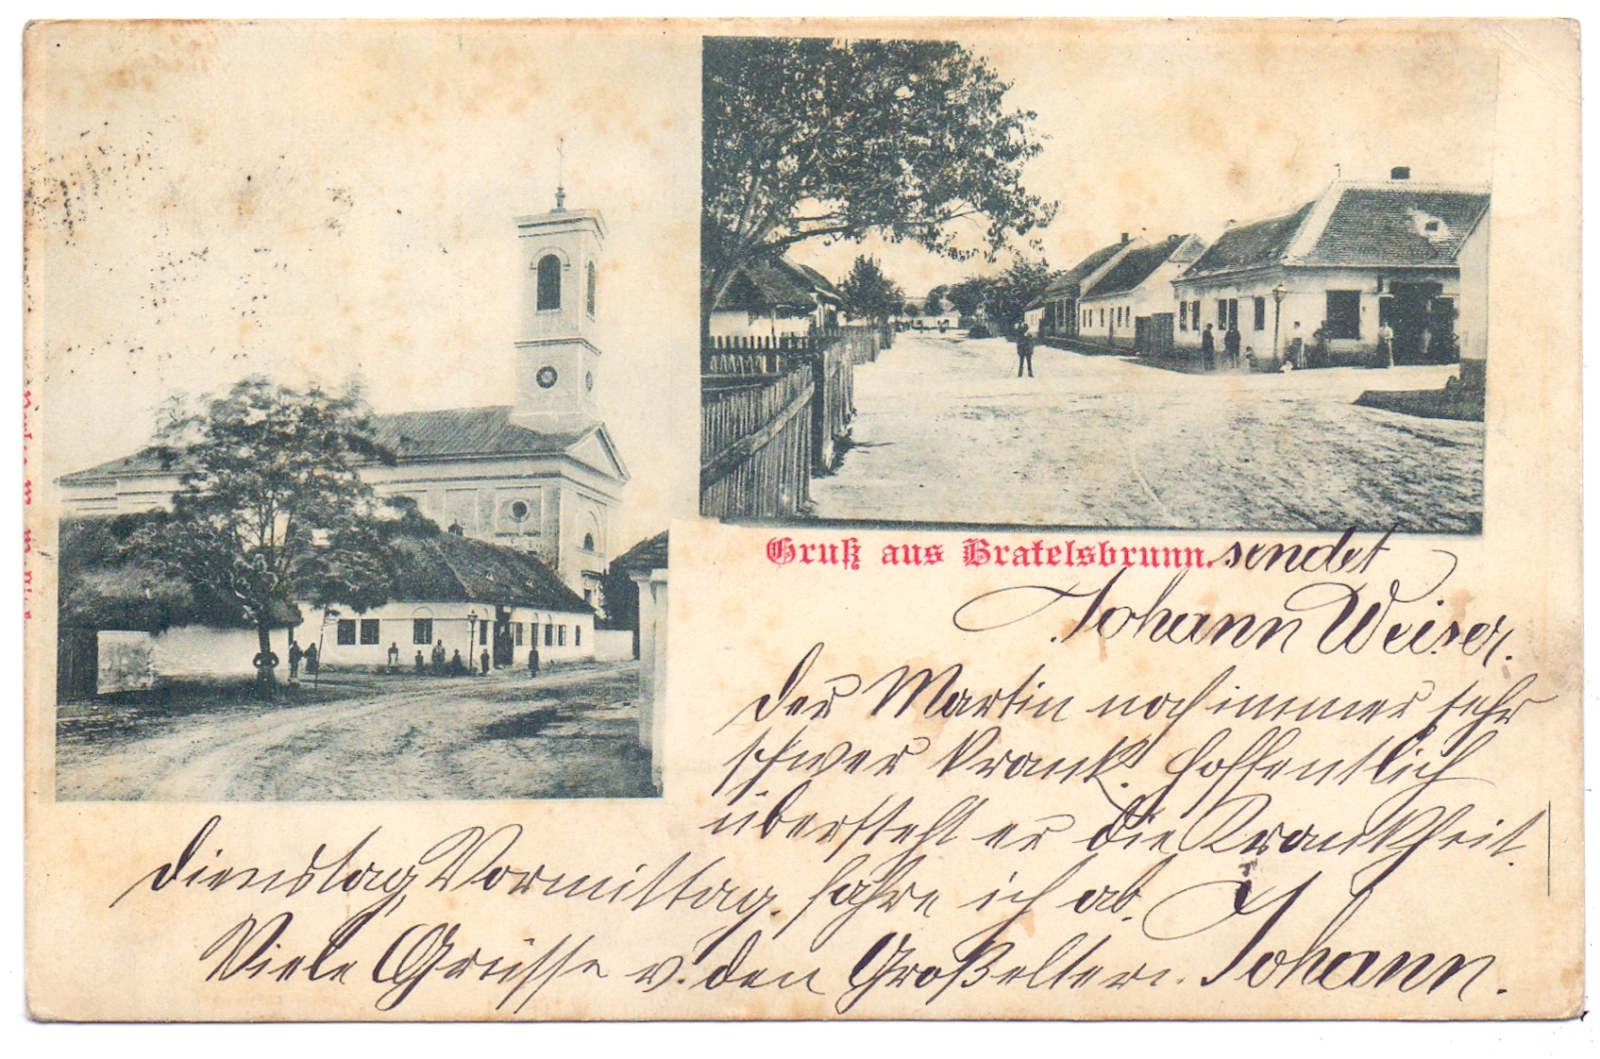 Gruß aus Bratelsbrunn. sendet
Johann Weiser.
Der Martin noch immer sehr
schwer krank. Hoffentlich
übersteht er die Krankheit.
Dienstag Vormittag fahre ich ab.
Viele Grüsse v. den Großeltern. Johann.